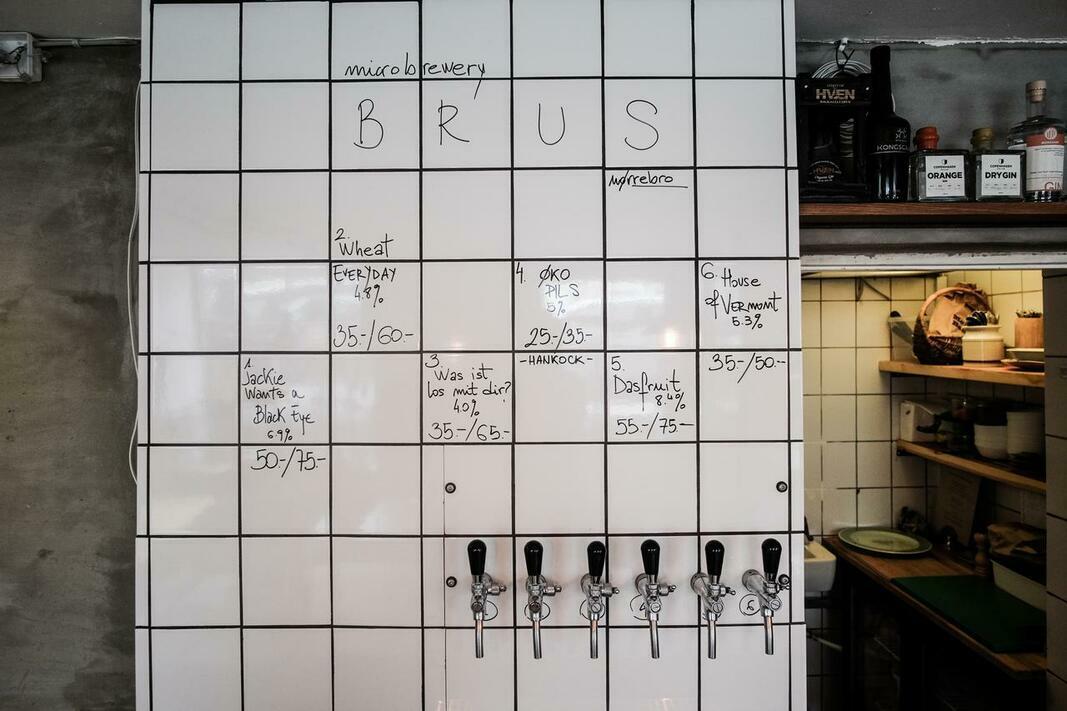 microbrewery
BRUS
nørrebro
1.
Jackie
Wants a
Black Eye
6.9%
50.-/75.-
2.
Wheat
EVERYDAY
4.8%
35.-/60.-
3.
Was ist
los mit dir?
4.0%
35.-/65.-
4. ØKO
PILS
5%
25.-/35.-
-HANKOCK-
5.
Dasfruit
8.4%
55.-/75.-
6. House
of Vermont
5.3%
35.-/50.-
HVEN
KONGSG
COPENHAGEN
ORANGE
COPENHAGEN
DRY GIN
GIN
HVEN
6